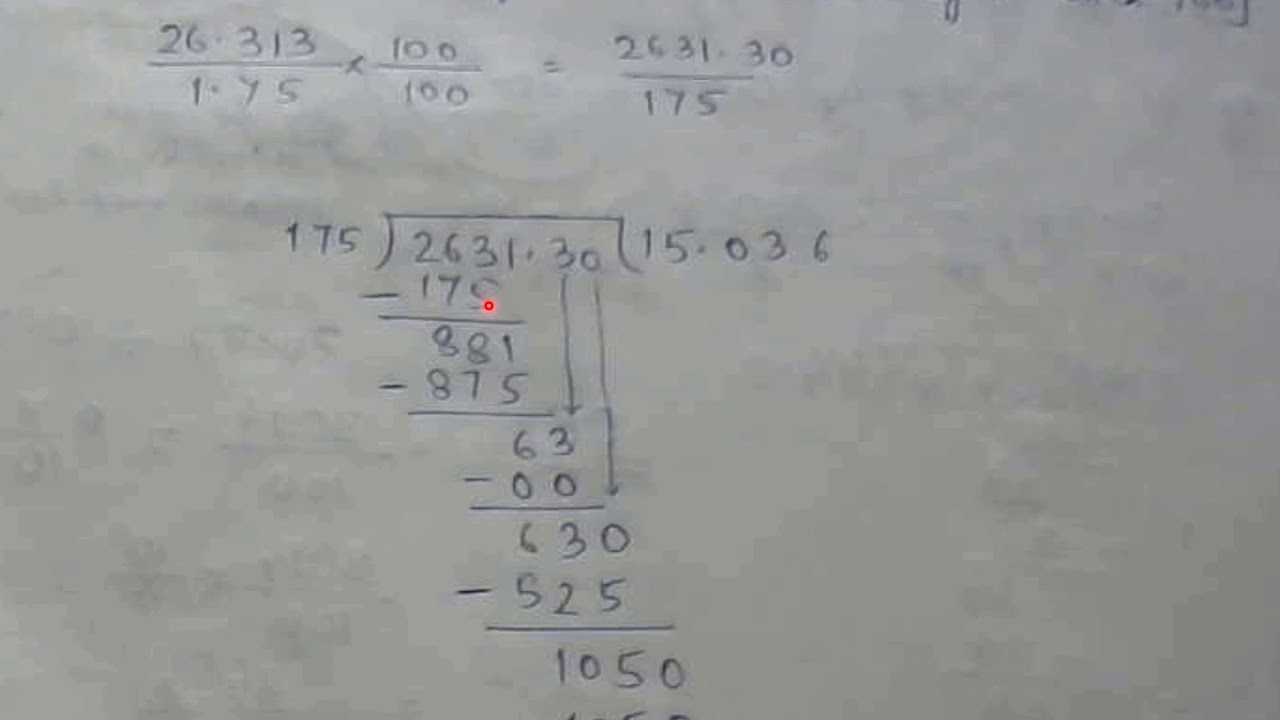 26.313 / 1.75 × 100 / 100 = 2631.30 / 175
175 ) 2631.30 ( 15.036
- 175
881
- 875
63
- 00
630
- 525
1050